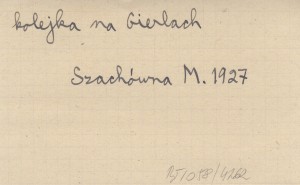 kolejka na Gierlach
Szachówna M. 1927
BJ/018/4262